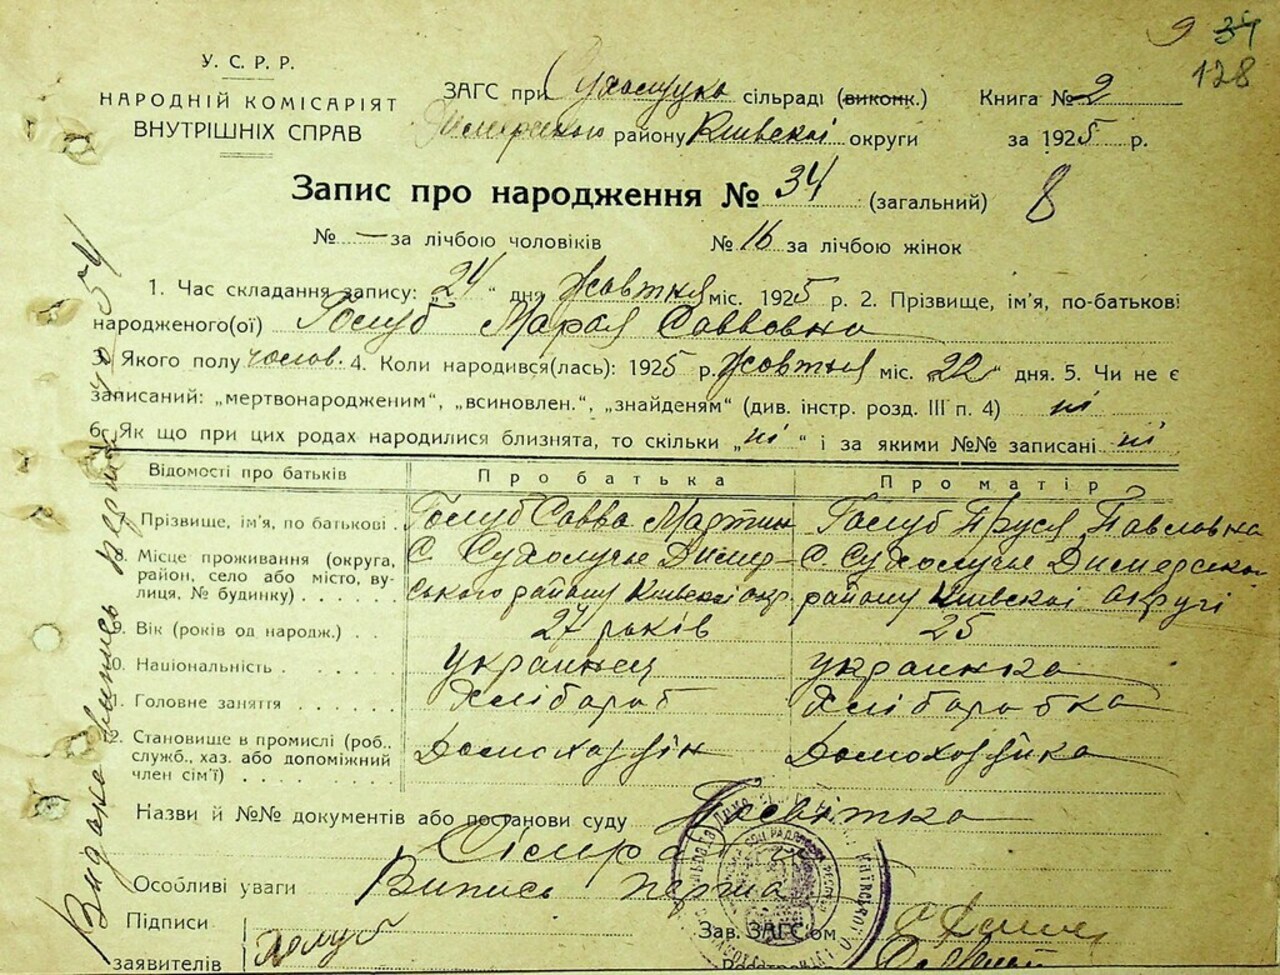 9 34
128
У. С. Р. Р.
НАРОДНІЙ КОМІСАРІЯТ
ВНУТРІШНІХ СПРАВ
ЗАГС при Сухолуцко сільраді (виконк.)
Димерского району Київскої округи
Книга № 2
за 1925 р.
Запис про народження № 34 (загальний) 8
№ — за лічбою чоловіків № 16 за лічбою жінок
1. Час складання запису: „24" дня Жовтня міс. 1925 р. 2. Прізвище, ім'я, по-батькові
народженого(ої) Голуб Марая Саввовна
3. Якого полу чолов. 4. Коли народився(лась): 1925 р. Жовтня міс. „22" дня. 5. Чи не є
записаний: „мертвонародженим", „всиновлен.", „знайденям" (див. інстр. розд. III п. 4) ні
6. Як що при цих родах народилися близнята, то скільки „ні" і за якими №№ записані ні
Відомості про батьків Про батька Про матір
Прізвище, ім'я, по батькові Голуб Савва Мартин Голуб Пруся Павловна
Місце проживання (округа, район, село або місто, вулиця, № будинку) С. Сухолуччє Димерського району Київскої окр. С. Сухолуччє Димерсько району Київскої округі
9. Вік (років од народж.) 27 років 25
10. Національність украинец украинка
11. Головне заняття Хлібороб Хліборобка
12. Становище в промислі (роб., служб., хаз. або допоміжний член сім'ї) Домохазяїн Домохазяйка
Назви й №№ документів або постанови суду Посвітка
Сілради
Особливі уваги Випись перша
Підписи
заявителів Голуб
Зав. ЗАГС'ом
Видано випись перш